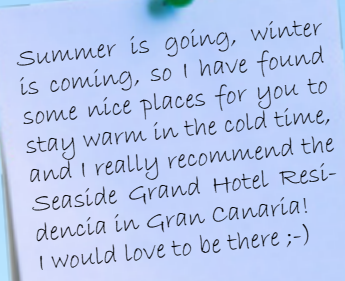 Summer is going, winter
is coming, so I have found
some nice places for you to
stay warm in the cold time,
and I really recommend the
Seaside Grand Hotel Resi-
dencia in Gran Canaria!
I would love to be there ;-)